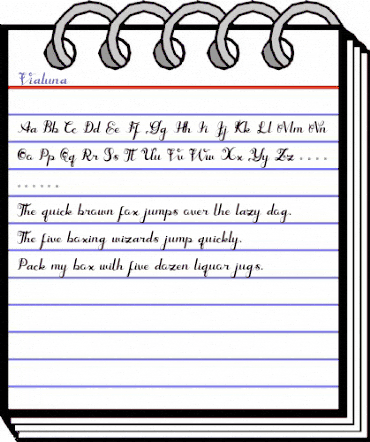 Vialuna
Aa Bb Cc Dd Ee Ff Gg Hh Ii Jj Kk Ll Mm Nn
Oo Pp Qq Rr Ss Tt Uu Vv Ww Xx Yy Zz . . . .
. . . . . .
The quick brown fox jumps over the lazy dog.
The five boxing wizards jump quickly.
Pack my box with five dozen liquor jugs.